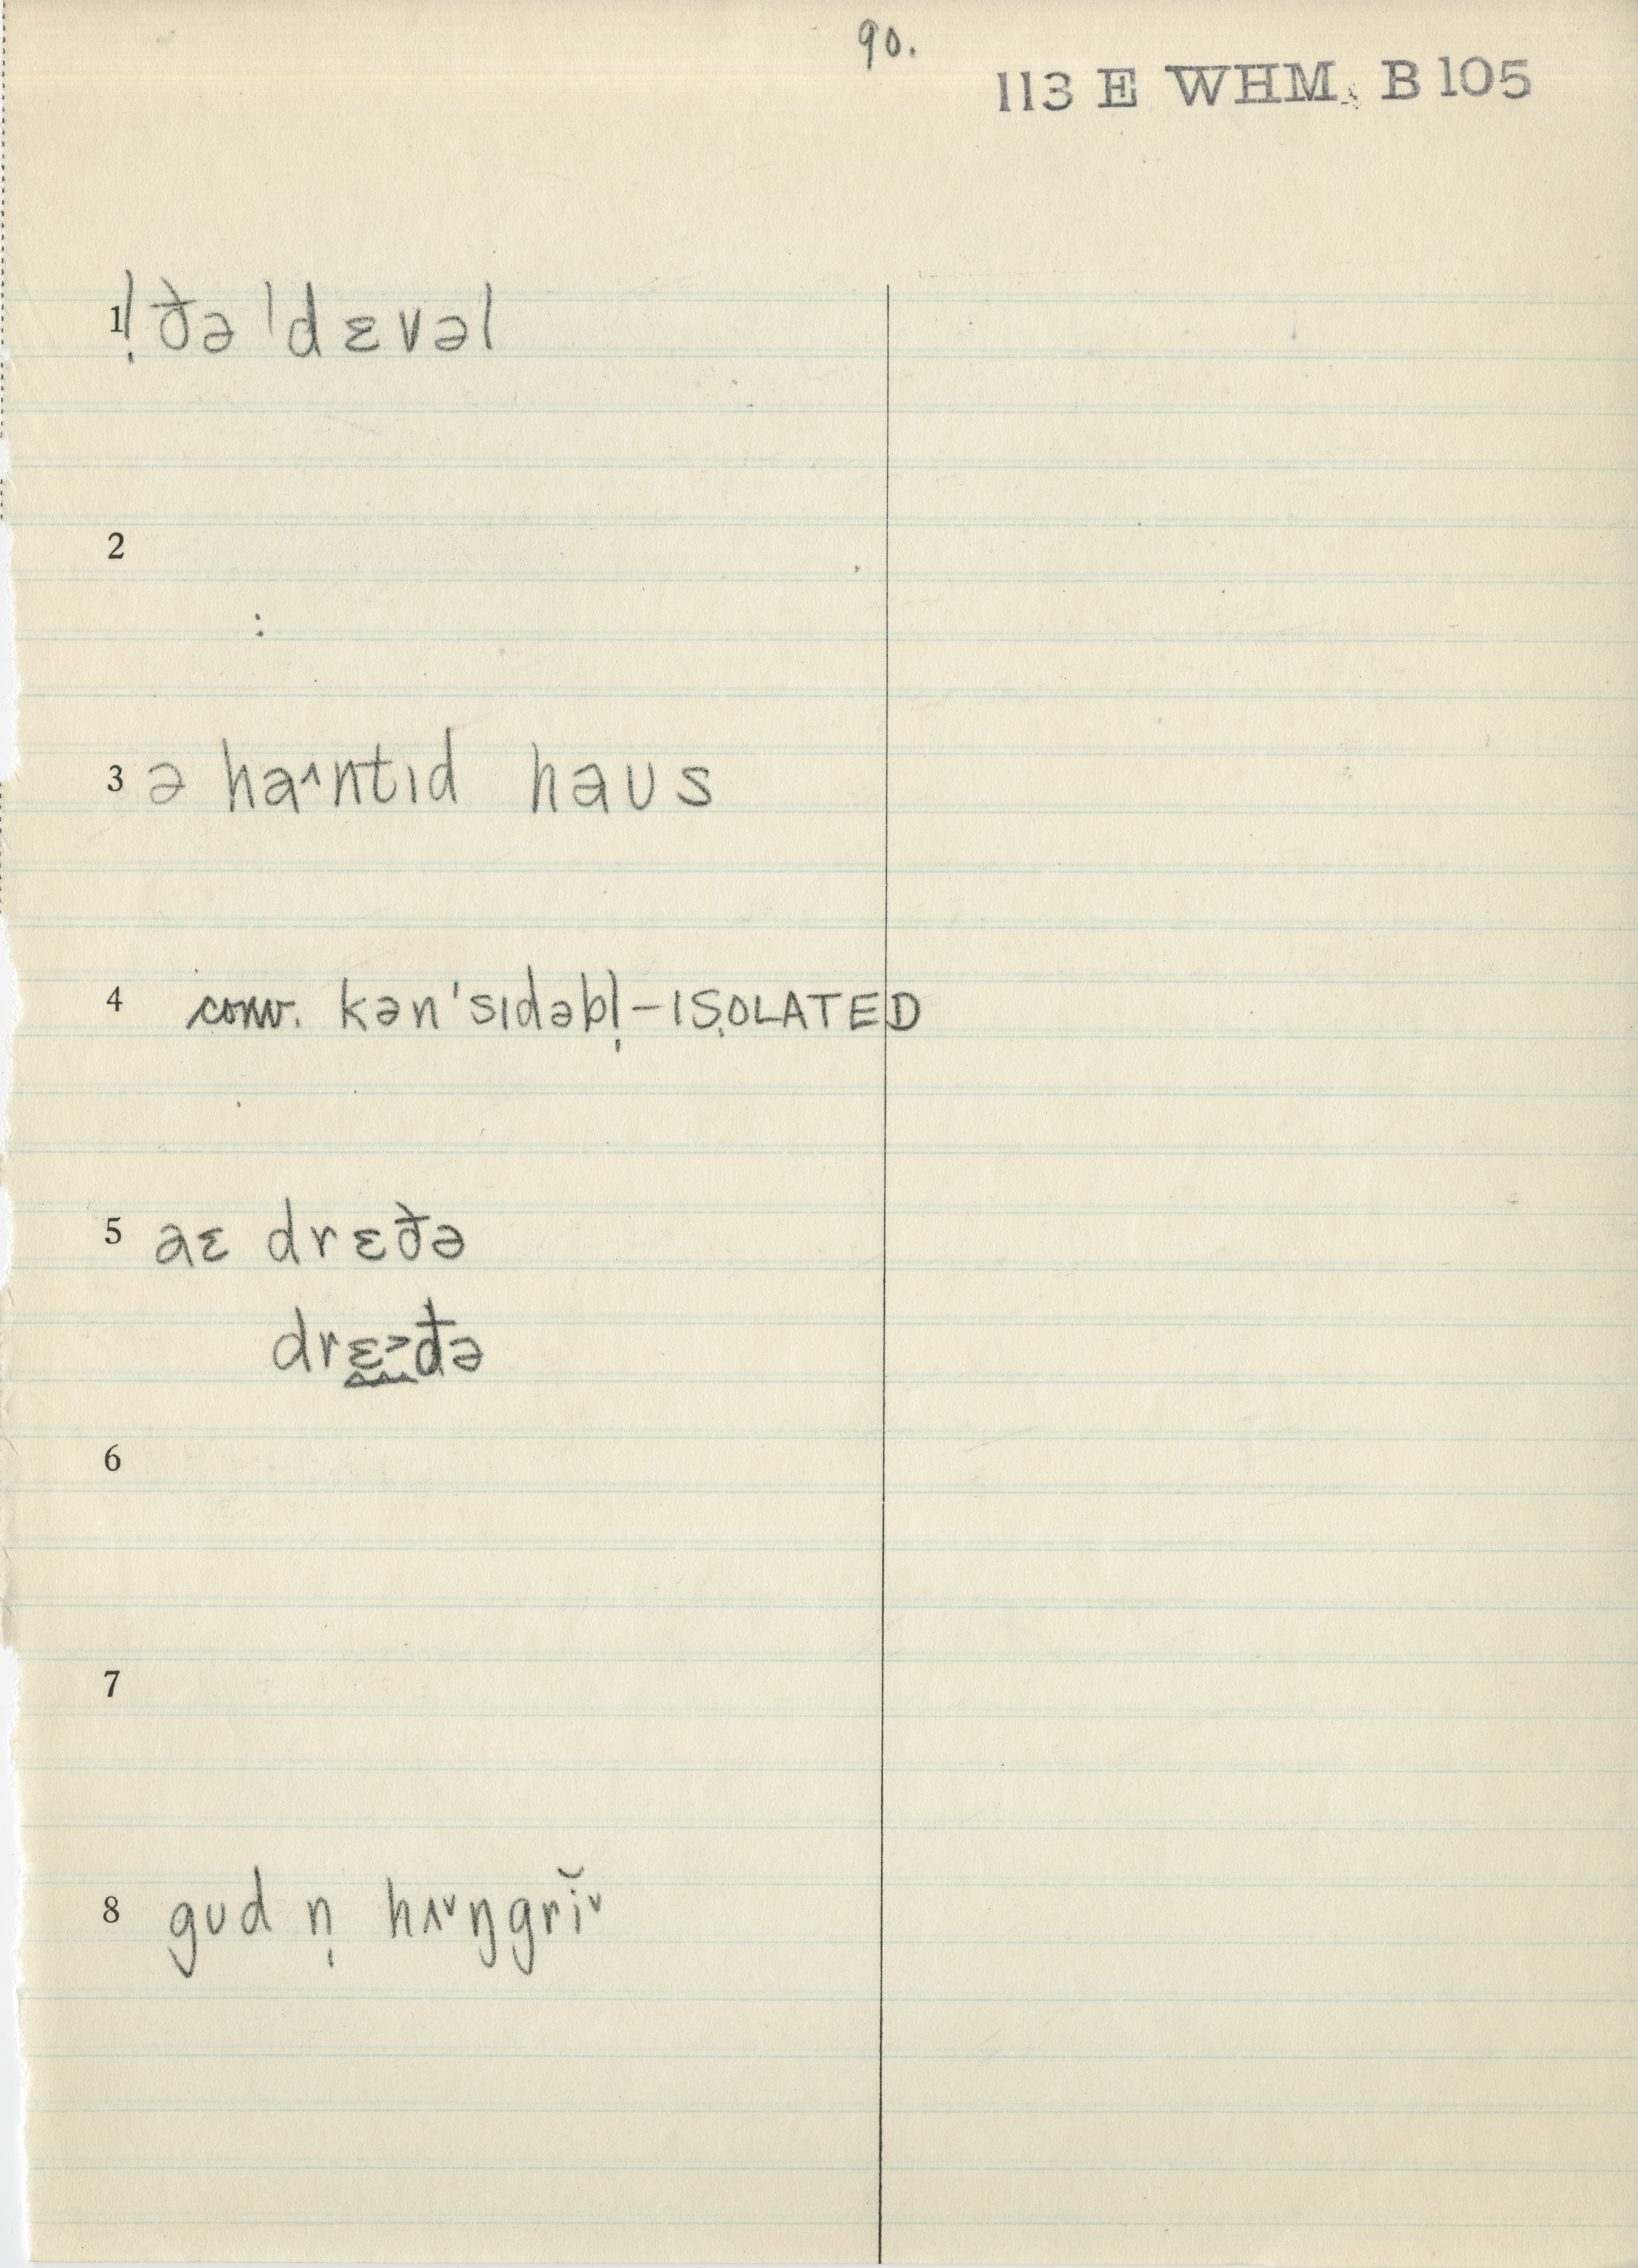 90.
113 E WHM. B 105
1 ! ðə ˈdɛvəl
2
:
3 ə ha˄ntɪd haʊs
4 conv. kən'sɪdəbl̩ – ISOLATED
5 aɛ drɛðə
drɛ˃ðə
6
7
8 gʊd n̩ hʌ˅ŋgrĭ˅